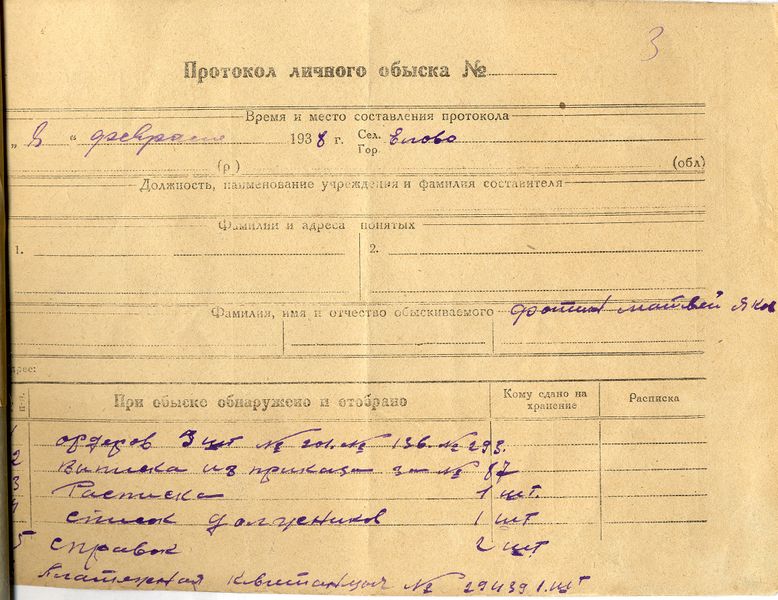 3
Протокол личного обыска №
Время и место составления протокола
„ 8 “ февраля 1938 г. Сел. Елово
Гор.
(р.) (обл)
Должность, наименование учреждения и фамилия составителя
Фамилии и адреса понятых
1. 2.
Фамилия, имя и отчество обыскиваемого Фотин матвей Яков
рес:
При обыске обнаружено и отобрано Кому сдано на хранение Расписка
1 ордеров 3 шт № 201. № 136. № 293.
2 Виписка из приказа за № 87
3 Расписка 1 шт.
4 список должников 1 шт
5 справок 2 шт
платежная квитанция № 29439 1. шт